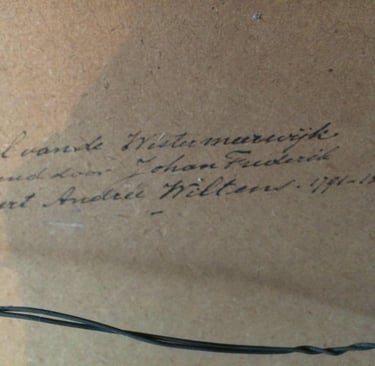 l van de Westermeerwijk
door Johan Frederik
ert André Wiltens. 1791-1